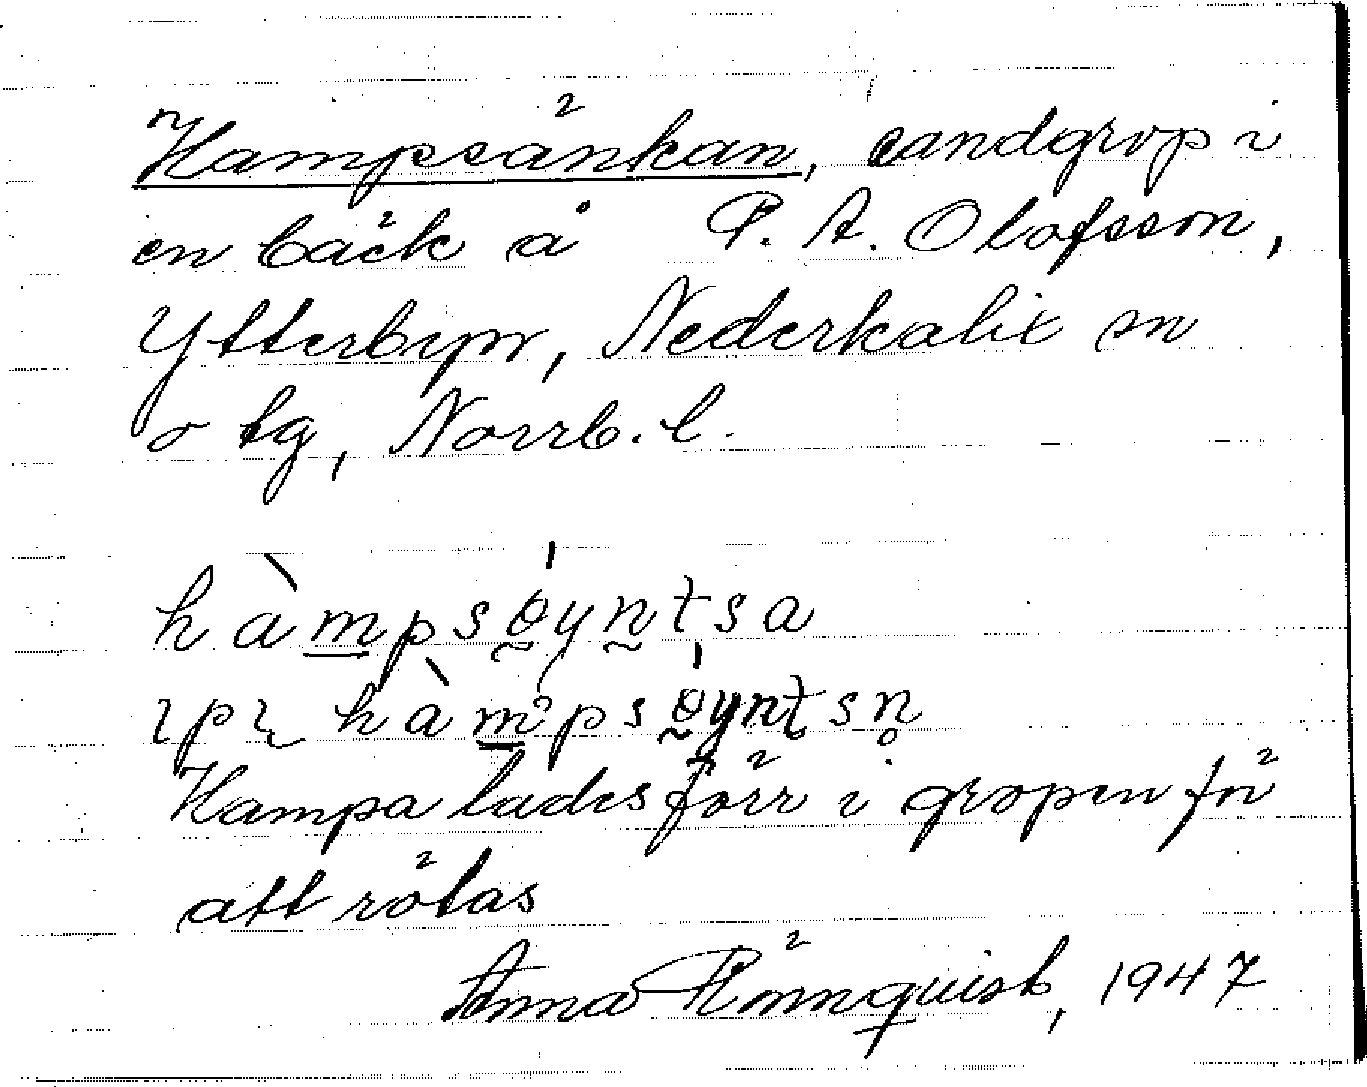 Hampsänkan, sandgrop i
en bäck å P. A. Olofsson,
Ytterbyn, Nederkalix sn
o tg, Norrb. l.
hàmpsɵyntsa
hàmpsɵyntsn̥
Hampa lades förr i gropen för
att rötas
Anna Rönnquist, 1947